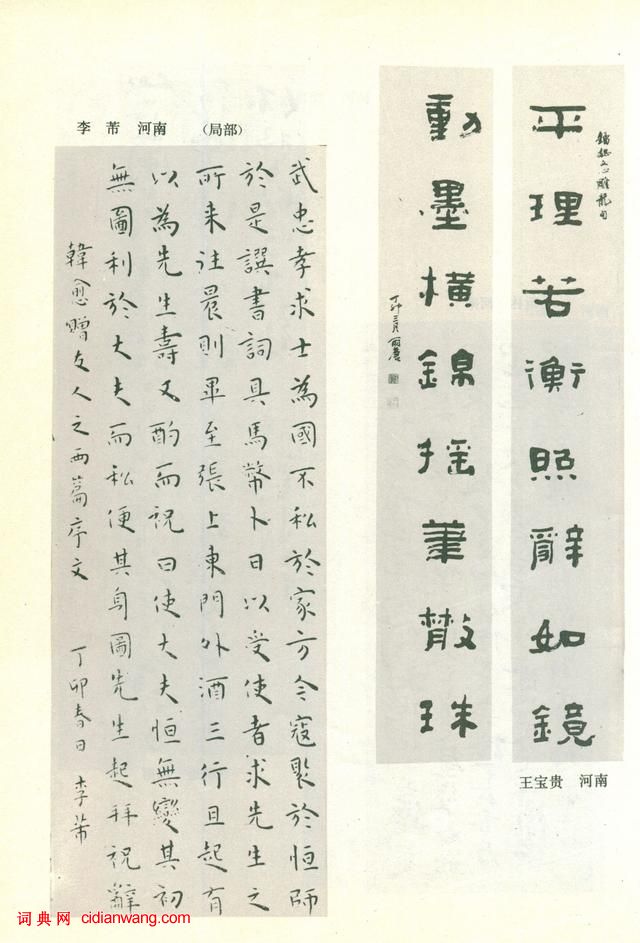 平理若衡照辭如鏡
文心雕龍句
動墨橫錦搖筆散珠
丁卯三月
王宝贵 河南
李 芾 河南 （局部）
武忠孝求士為國不私於家方今寇聚於恒師
於是譔書詞具馬幣卜日以受使者求先生之
所来往晨則畢至張上東門外酒三行且起有
以為先生壽又酌而祝曰使大夫恒無變其初
無圖利於大夫而私便其身圖先生起拜祝辭
韓愈贈友人之兩篇序文 丁卯春日 李芾
词典网 cidianwang.com